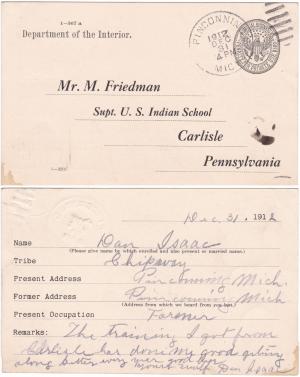 1-567 a
Department of the Interior.
PINCONNING
1912
DEC
31
4 PM
MICH
Mr. M. Friedman
Supt. U. S. Indian School
Carlisle
Pennsylvania
Dec. 31, 1912
Name Dan Isaac
(Please give name by which enrolled and also present or married name.)
Tribe Chipaway
Present Address Pinconning Mich.
Former Address Pinconning Mich
(Address from which we heard from you.)
Present Occupation Farmer
Remarks: The training I got from
Carlisle has done my good getting
along better every over
Yours truly Dan Isaac